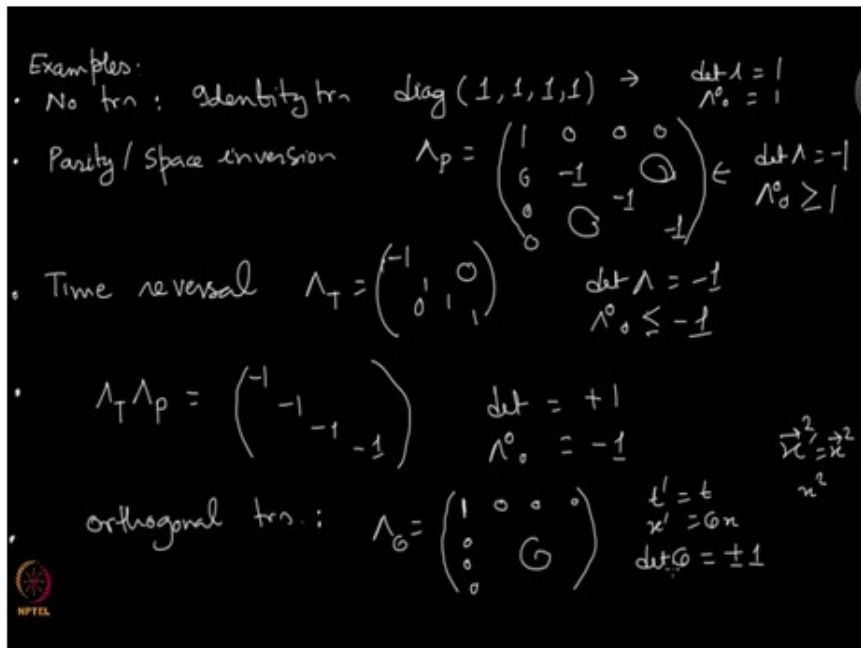 Examples:
• No trn : Identity trn diag (1,1,1,1) → det Λ = 1
Λ⁰₀ = 1
• Parity / Space inversion Λ_P = ( 1 0 0 0
0 -1 0
0 0 -1
0 -1 ) ← det Λ = -1
Λ⁰₀ ≥ 1
• Time reversal Λ_T = ( -1
1 0
0 1
1 ) det Λ = -1
Λ⁰₀ ≤ -1
• Λ_T Λ_P = ( -1
-1
-1
-1 ) det = +1
Λ⁰₀ = -1
x⃗'² = x⃗²
x²
• Orthogonal trn. : Λ_O = ( 1 0 0 0
0
0 O
0 ) t' = t
x' = Ox
det O = ±1
NPTEL